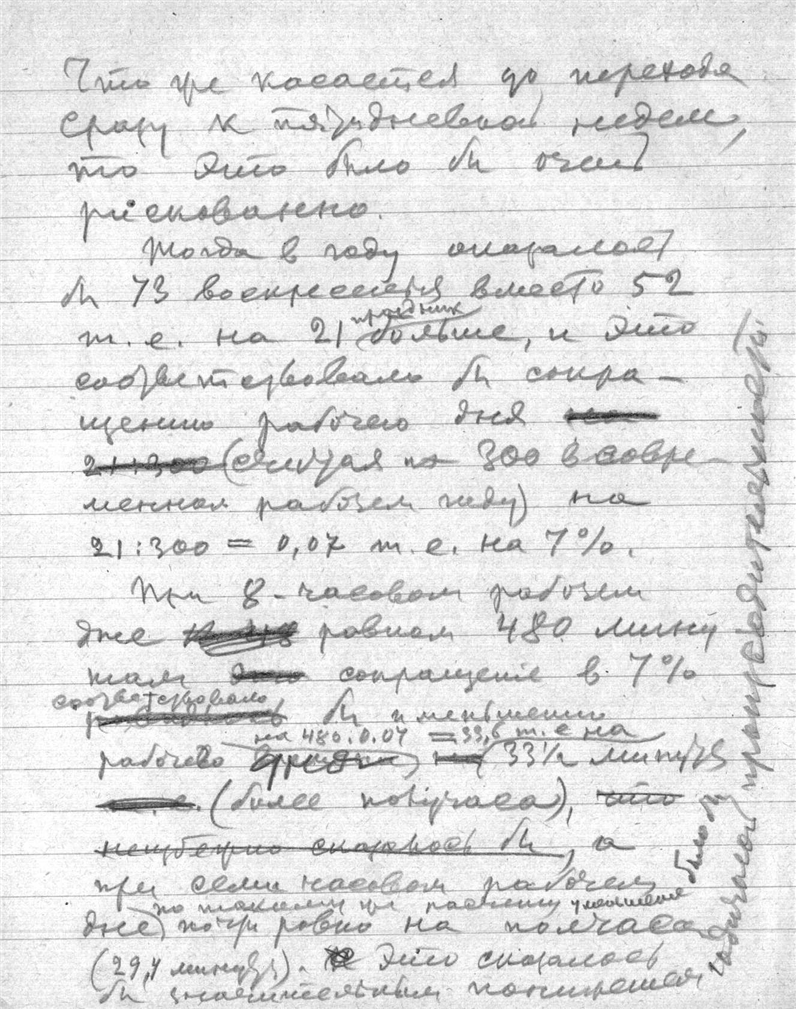 Что же касается до перехода
сразу к пятидневной неделе,
то это было бы очень
рискованно.
Тогда в году оказалось
бы 73 воскресенья вместо 52
праздник
т.е. на 21 больше, и это
соответствовало бы сокра-
щению рабочего дня
21:300 (считая 300 в совре-
менном рабочем году) на
21:300 = 0,07 т.е. на 7%.
При 8-часовом рабочем
дне равном 480 мину
там это сокращение в 7%
соответствовало
бы уменьшению
на 480.0.07 = 33,6 т.е на
рабочего времени, 33½ минуты
т.е. (более получаса), это
неизбежно сказалось бы, а
при семичасовом рабочем
по такому же расчету уменьшение было бы
дне почти ровно на полчаса
(29,4 минуты). Это сказалось
бы значительным понижением
годичной производительности.